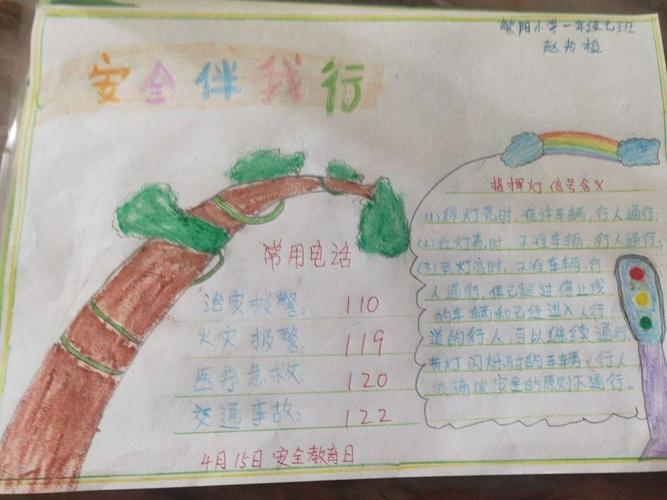 阳小学一年级七班
赵 植
安全伴我行
指挥灯 信号含义
(1)绿灯亮时,准许车辆,行人通行;
(2)红灯亮时,不准车辆,行人通行;
(3)黄灯亮时,不准车辆,行
人通行,但已超过停止线
的车辆和已经进入人行
道的行人,可以继续通行
黄灯闪烁时的车辆,行人
确保安全的原则下通行。
常用电话
治安报警: 110
火灾报警: 119
医疗急救: 120
交通事故: 122
4月15日安全教育日